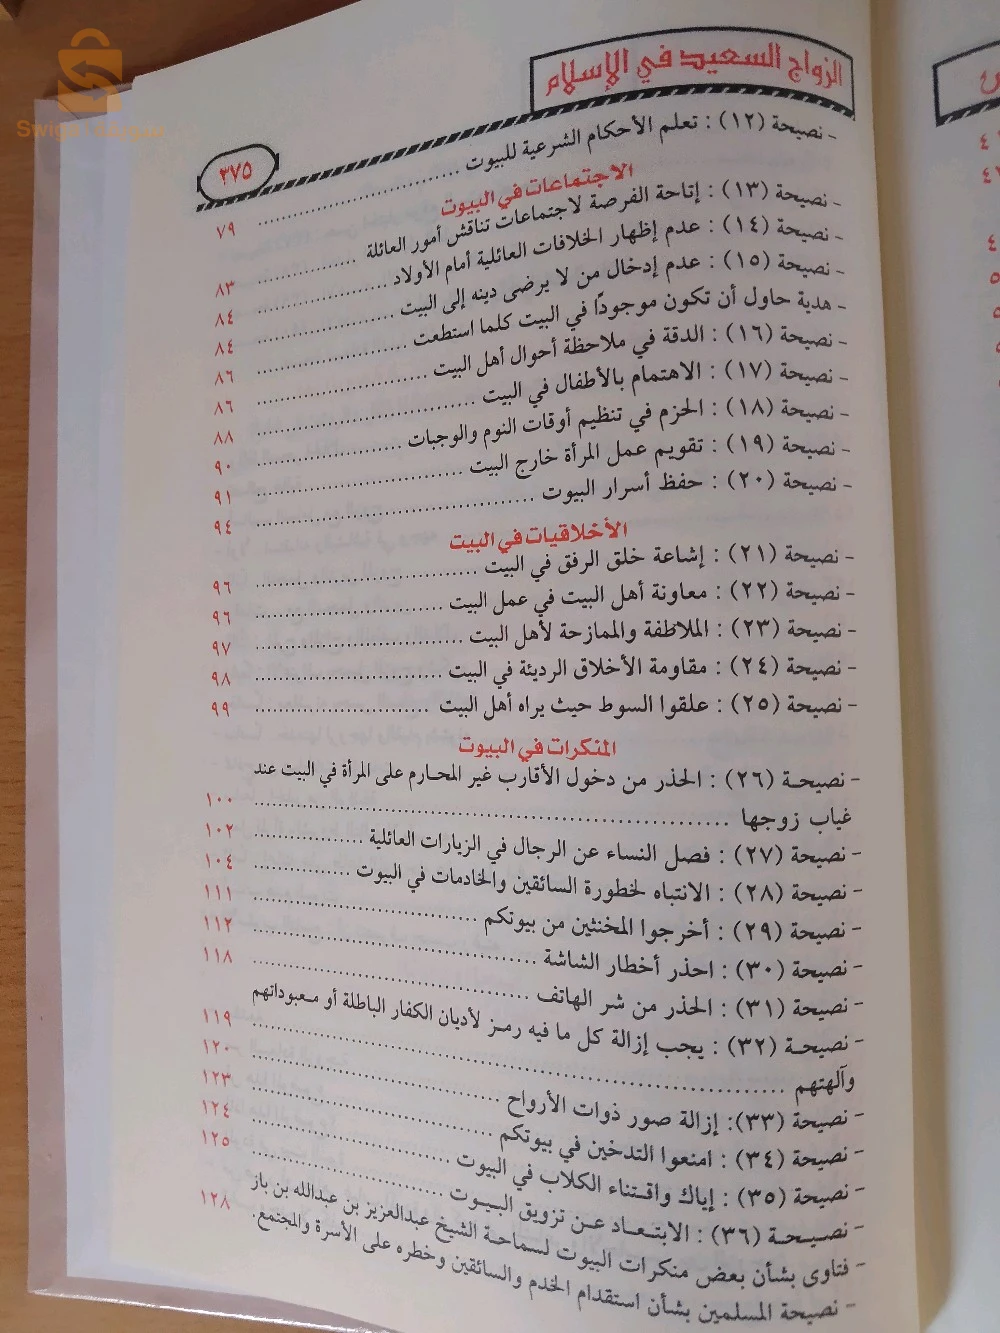 الزواج السعيد في الإسلام
٣٧٥
- نصيحة (١٢) : تعلم الأحكام الشرعية للبيوت ........ ٧٩
الاجتماعات في البيوت
- نصيحة (١٣) : إتاحة الفرصة لاجتماعات تناقش أمور العائلة ........ ٨٣
- نصيحة (١٤) : عدم إظهار الخلافات العائلية أمام الأولاد ........ ٨٤
- نصيحة (١٥) : عدم إدخال من لا يرضى دينه إلى البيت ........ ٨٤
- هدية حاول أن تكون موجودًا في البيت كلما استطعت ........ ٨٦
- نصيحة (١٦) : الدقة في ملاحظة أحوال أهل البيت ........ ٨٦
- نصيحة (١٧) : الاهتمام بالأطفال في البيت ........ ٨٨
- نصيحة (١٨) : الحزم في تنظيم أوقات النوم والوجبات ........ ٩٠
- نصيحة (١٩) : تقويم عمل المرأة خارج البيت ........ ٩١
- نصيحة (٢٠) : حفظ أسرار البيوت ........ ٩٤
الأخلاقيات في البيت
- نصيحة (٢١) : إشاعة خلق الرفق في البيت ........ ٩٦
- نصيحة (٢٢) : معاونة أهل البيت في عمل البيت ........ ٩٦
- نصيحة (٢٣) : الملاطفة والممازحة لأهل البيت ........ ٩٧
- نصيحة (٢٤) : مقاومة الأخلاق الرديئة في البيت ........ ٩٨
- نصيحة (٢٥) : علقوا السوط حيث يراه أهل البيت ........ ٩٩
المنكرات في البيوت
- نصيحة (٢٦) : الحذر من دخول الأقارب غير المحارم على المرأة في البيت عند
غياب زوجها ........ ١٠٠
- نصيحة (٢٧) : فصل النساء عن الرجال في الزيارات العائلية ........ ١٠٢
- نصيحة (٢٨) : الانتباه لخطورة السائقين والخادمات في البيوت ........ ١٠٤
- نصيحة (٢٩) : أخرجوا المخنثين من بيوتكم ........ ١١١
- نصيحة (٣٠) : احذر أخطار الشاشة ........ ١١٢
- نصيحة (٣١) : الحذر من شر الهاتف ........ ١١٨
- نصيحة (٣٢) : يجب إزالة كل ما فيه رمز لأديان الكفار الباطلة أو معبوداتهم
وآلهتهم ........ ١١٩
- نصيحة (٣٣): إزالة صور ذوات الأرواح ........ ١٢٠
- نصيحة (٣٤) : امنعوا التدخين في بيوتكم ........ ١٢٣
- نصيحة (٣٥) : إياك واقتناء الكلاب في البيوت ........ ١٢٤
- نصيحة (٣٦) : الابتعاد عن تزويق البيوت ........ ١٢٥
- فتاوى بشأن بعض منكرات البيوت لسماحة الشيخ عبدالعزيز بن عبدالله بن باز ١٢٨
- نصيحة المسلمين بشأن استقدام الخدم والسائقين وخطره على الأسرة والمجتمع.